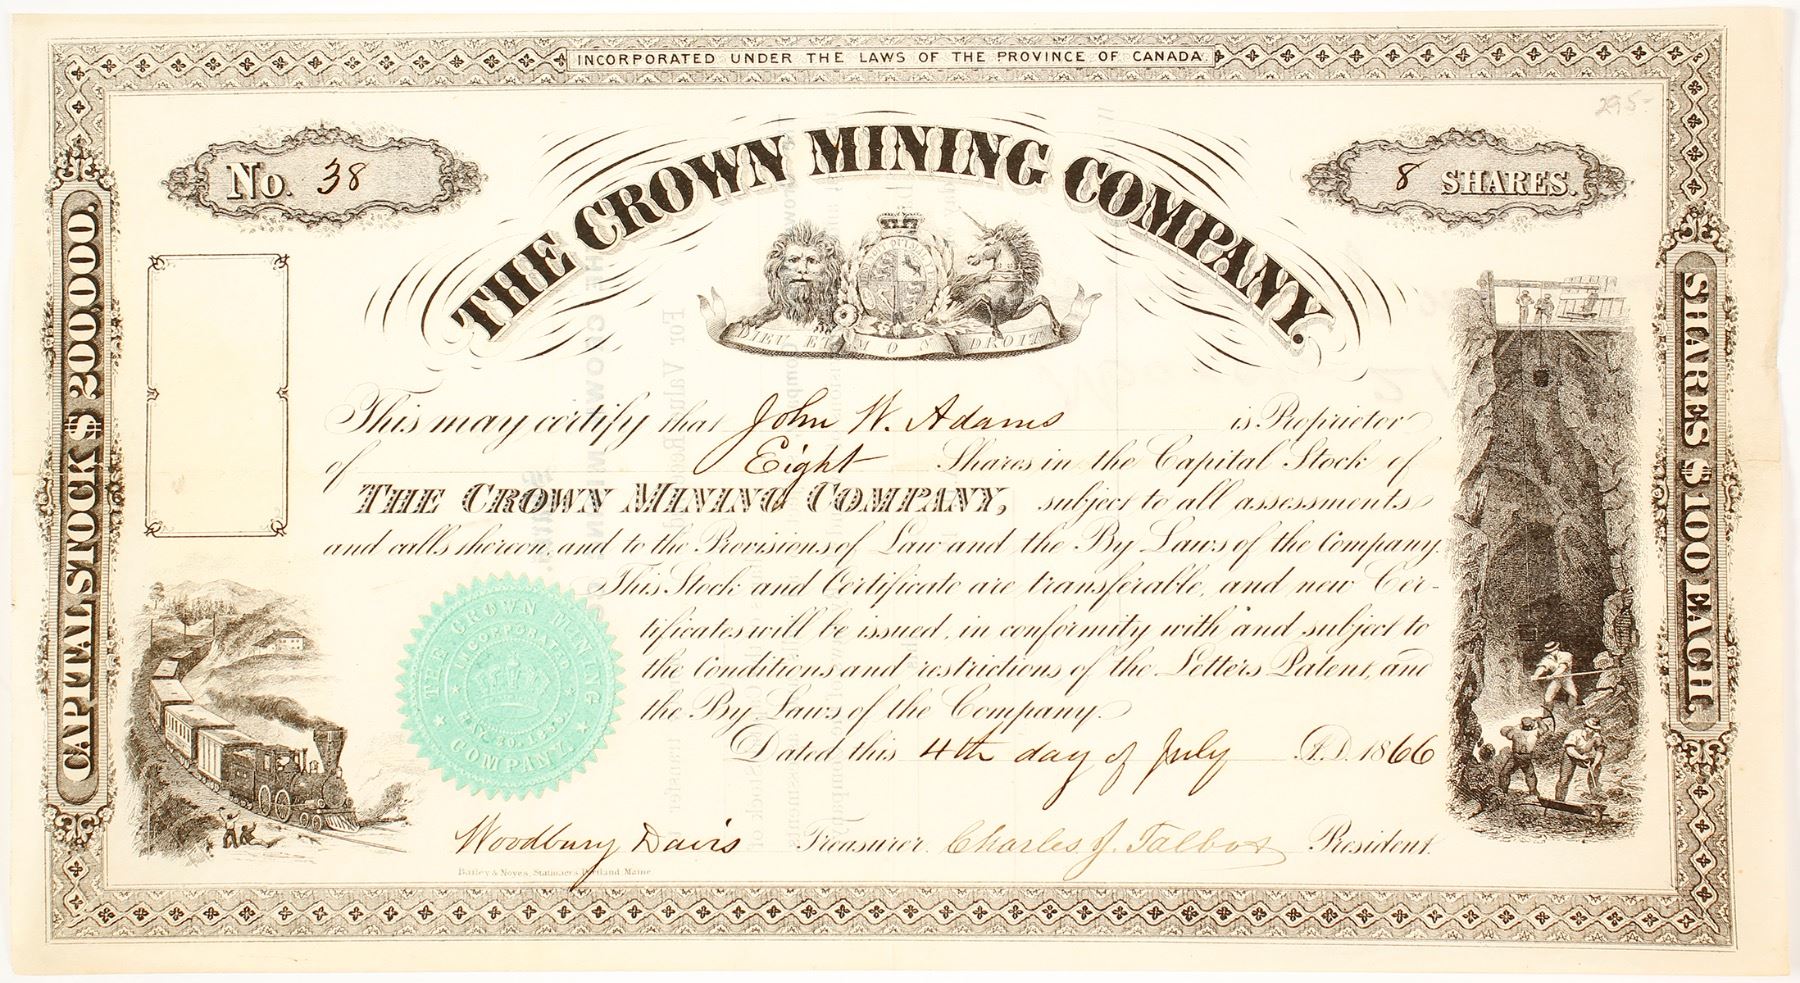 INCORPORATED UNDER THE LAWS OF THE PROVINCE OF CANADA
295-
No. 38
8 SHARES.
THE CROWN MINING COMPANY.
DIEU ET MON DROIT
CAPITAL STOCK $ 200,000.
SHARES $ 100 EACH.
This may certify that John W. Adams is Proprietor
of Eight Shares in the Capital Stock of
THE CROWN MINING COMPANY, subject to all assessments
and calls thereon, and to the Provisions of Law and the By Laws of the Company.
This Stock and Certificate are transferable, and new Cer-
tificates will be issued, in conformity with and subject to
the Conditions and restrictions of the Letters Patent, and
the By Laws of the Company.
THE CROWN MINING COMPANY.
INCORPORATED
MAY. 30. 18
Dated this 4th day of July A.D. 1866
Woodbury Davis Treasurer. Charles J. Talbot President.
Bailey & Noyes, Stationers Portland Maine